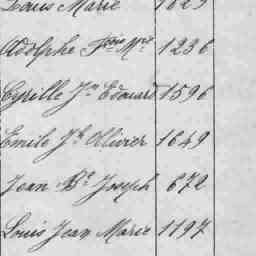 Louis Marie 1625
Adolphe Fçois Mie 1236
Cyrille Jn Edouard 1596
Emile Jh Ollivier 1649
Jean Bte Joseph 672
Louis Jean Marie 1197